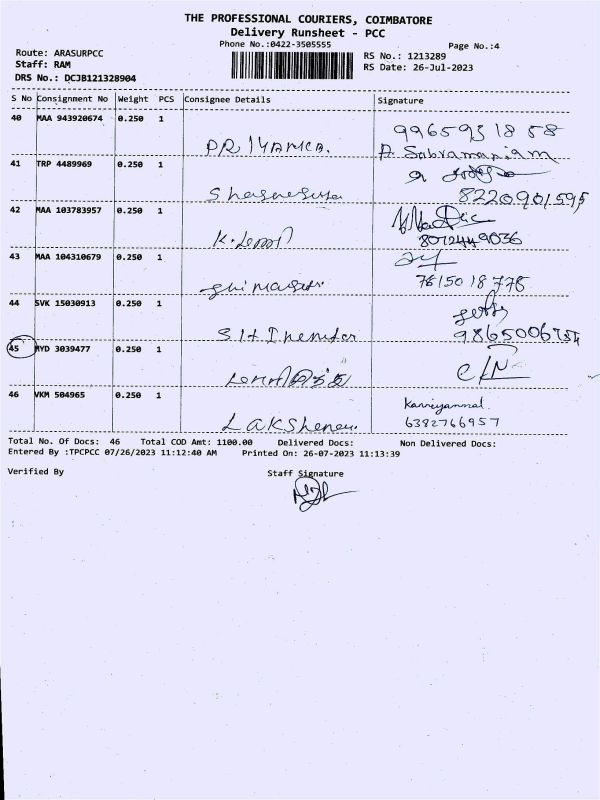 THE PROFESSIONAL COURIERS, COIMBATORE
Delivery Runsheet - PCC
Phone No.:0422-3505555
Page No.:4
Route: ARASURPCC
RS No.: 1213289
Staff: RAM
RS Date: 26-Jul-2023
DRS No.: DCJB121328904
S No Consignment No Weight PCS Consignee Details Signature
40 MAA 943920674 0.250 1
9965931858
A. Subramaniam
41 TRP 4489969 0.250 1
8220901595
42 MAA 103783957 0.250 1
8072449036
43 MAA 104310679 0.250 1
7615018778
44 SVK 15030913 0.250 1
45 MYD 3039477 0.250 1
46 VKM 504965 0.250 1
Kanniyammal
6382766957
Total No. Of Docs: 46 Total COD Amt: 1100.00 Delivered Docs: Non Delivered Docs:
Entered By :TPCPCC 07/26/2023 11:12:40 AM Printed On: 26-07-2023 11:13:39
Verified By Staff Signature